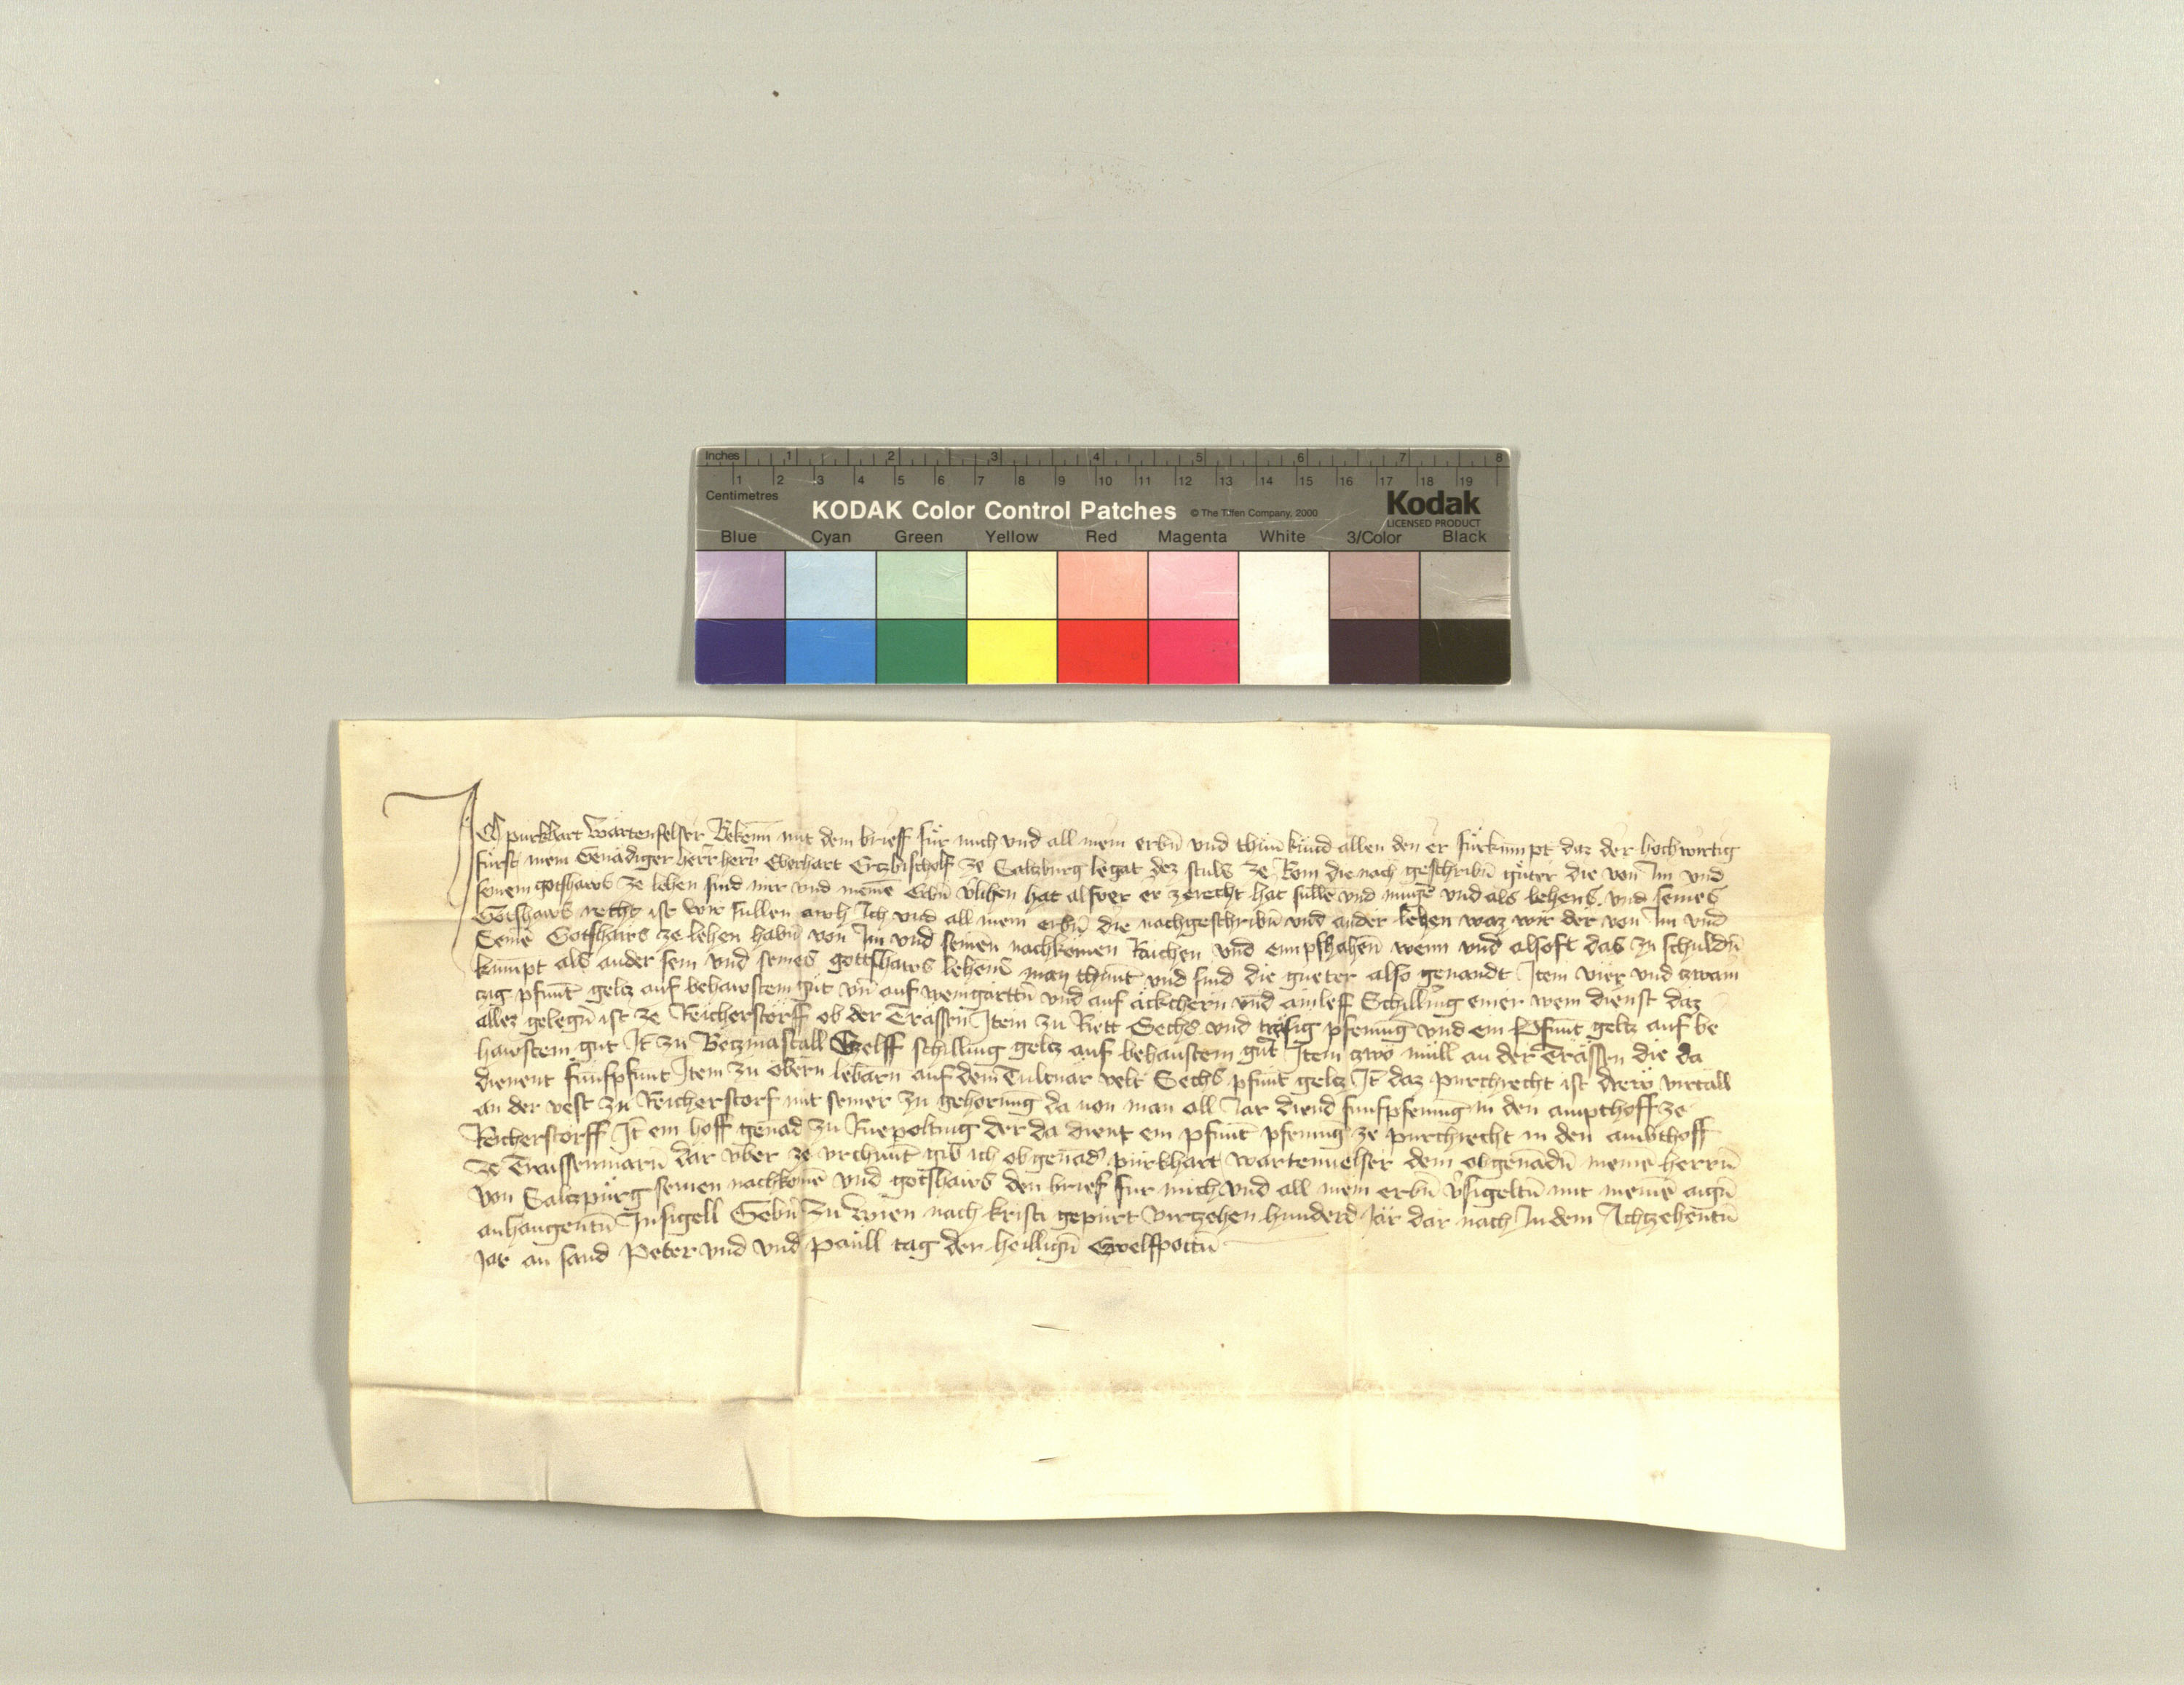 Inches 1 2 3 4 5 6 7 8
1 2 3 4 5 6 7 8 9 10 11 12 13 14 15 16 17 18 19
Centimetres
KODAK Color Control Patches © The Tiffen Company, 2000 Kodak
LICENSED PRODUCT
Blue Cyan Green Yellow Red Magenta White 3/Color Black
Ich purkhart Wartenfelser Bekenn mit dem brieff für mich vnd all mein erbn̄ vnd thun kund allen den er fürkumpt daz der hochwirtig
fürst mein Genädiger herr herr Eberhart Ertzbischolf ze Saltzburg legat dez stuls ze Rom die nach geschribn̄ güter die von Im vnd
seinem gotshaws ze lehen sind mir vnd meinē Erbn̄ v̄lihen hat alsver er zerecht hat sullē vnd mugē vnd als lehens vnd seines
Gotshaws recht ist Wir sullen awh Ich vnd all mein erbn̄ die nachgeschribn̄ vnd ander lehen waz wir der von Im vnd
Seinē Gotshaws ze lehen habn̄ von Im vnd seinen nachkomen Raichen vnd emphahen wenn vnd alsoft das zu schuldn̄
kumpt als ander sein vnd seines gottshaws lehens man thunt vnd sind die gueter also genandt Item vier vnd zwain
czig pfunt geltz auf behawstem gut vn̄ auf weingarttn̄ vnd auf äckchern vnd ainleff Schilling einer wein dienst daz
allez gelegn̄ ist ze Reicherstorff ob der Trässen Item zu Rett Sechs vnd pfenning vnd ein Pfunt geltz auf be
hawstem gut It̄ zu Zwelff schilling geltz auf behaustem gut Item zwo müll an der Trässen die da
dienent funfpfunt Item zu obern lebarn auf dem Tulnär velt Sechs pfunt geltz It̄ daz purchrecht ist drew virtall
an der vest zu Reicherstorf mit seiner zu gehorung da von man all Jar diend funfpfenning in den ampthoff ze
Reicherstorff It̄ ein hoff genad zu Ruepolting der da dient ein pfunt pfenning ze purchrecht in den ambthoff
ze Traissenmaurn dar vber ze vrchunt gib ich obgenad' purkhart wartenvelser dem obgenadn̄ meinē herrn̄
von Saltzpurg seinen nachkomē vnd gotshaws den brief fur mich vnd all mein erbn̄ v̄sigeltn̄ mit meinē aign̄
anhangentn̄ Insigell Gebn̄ zu wien nach kristi gepurt virtzehen hunderd Jar dar nach In dem Achtzehentn̄
Jar an sand Peter vnd vnd paull tag der heillign̄ Zwelfpottn̄